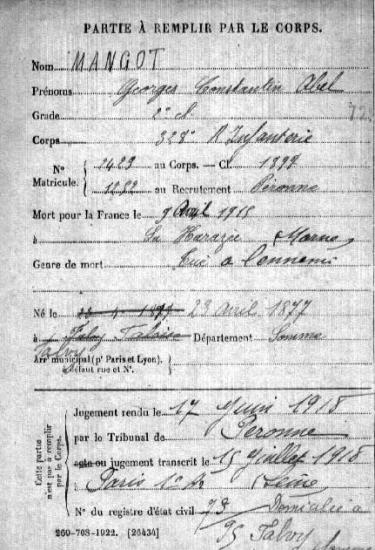 PARTIE À REMPLIR PAR LE CORPS.
Nom MANGOT
Prénoms Georges Constantin Abel
Grade 2e cl.
Corps 328e R Infanterie
N° Matricule. 2423 au Corps. — Cl. 1897
1222 au Recrutement Péronne
Mort pour la France le 9 Avril 1915
à La Harazée Marne
Genre de mort Tué à l'ennemi
Né le 23 avril 1877
à Falvy Département Somme
Arr municipal (p' Paris et Lyon),
à défaut rue et N°.
Cette partie n'est pas à remplir par le Corps.
Jugement rendu le 17 Juin 1918
par le Tribunal de Péronne
acte ou jugement transcrit le 15 Juillet 1918
Paris 1er Seine
N° du registre d'état civil 78 Domicilié à
Falvy Somme
260-708-1922. [26434]